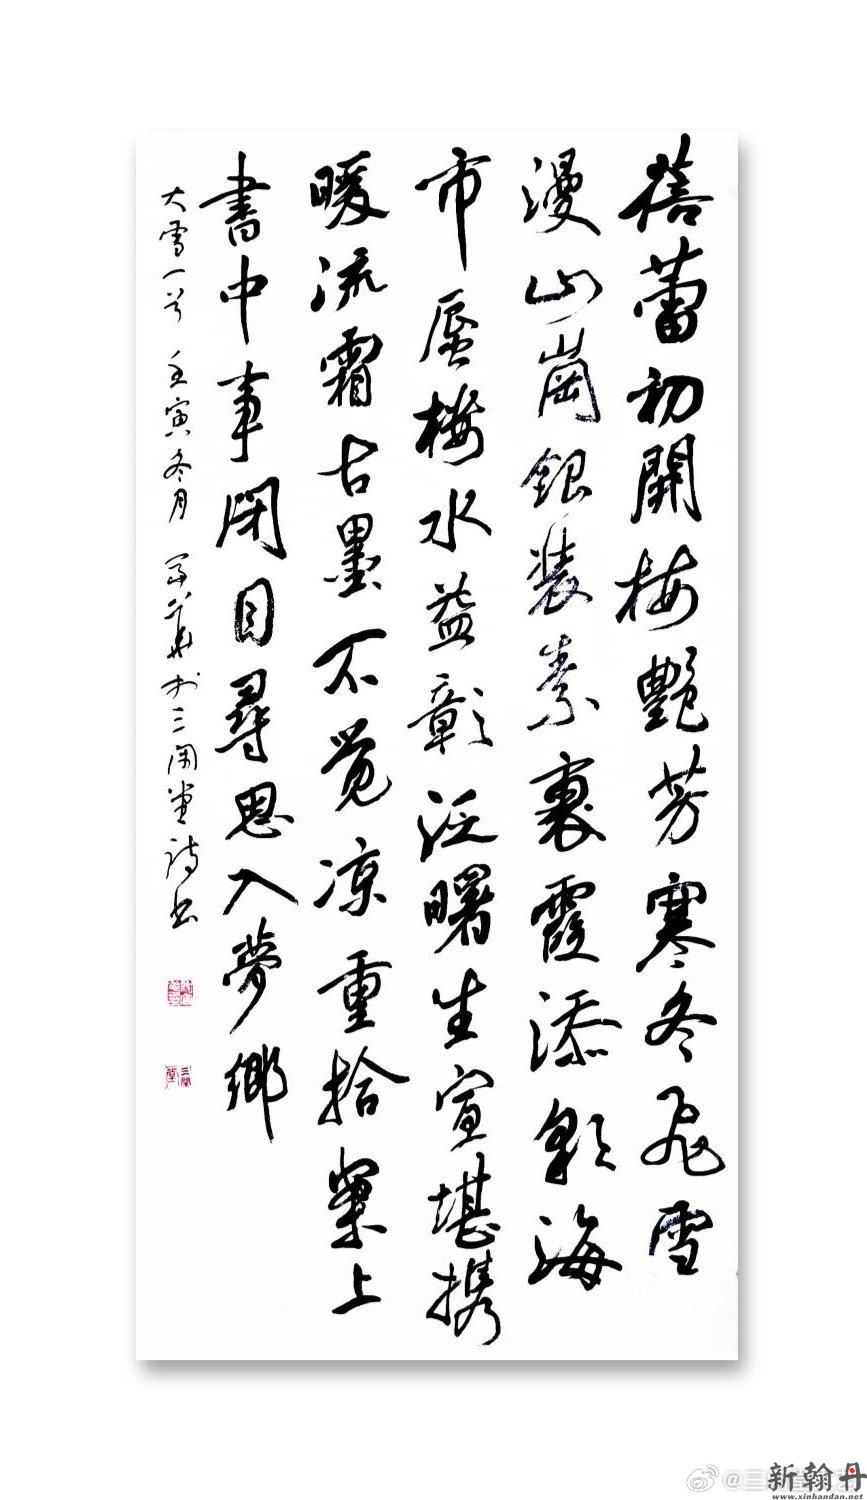 蓓蕾初開梅艷芳寒冬飛雪
漫山崗銀装素裹霞添彩海
市蜃樓水益彰泛曙生宣堪携
暖流霜古墨不覚凉重拾案上
書中事閉目尋思入夢鄉
大雪一首 壬寅冬月 於三閑堂詩书
@三
新翰丹
www.xinhandan.net